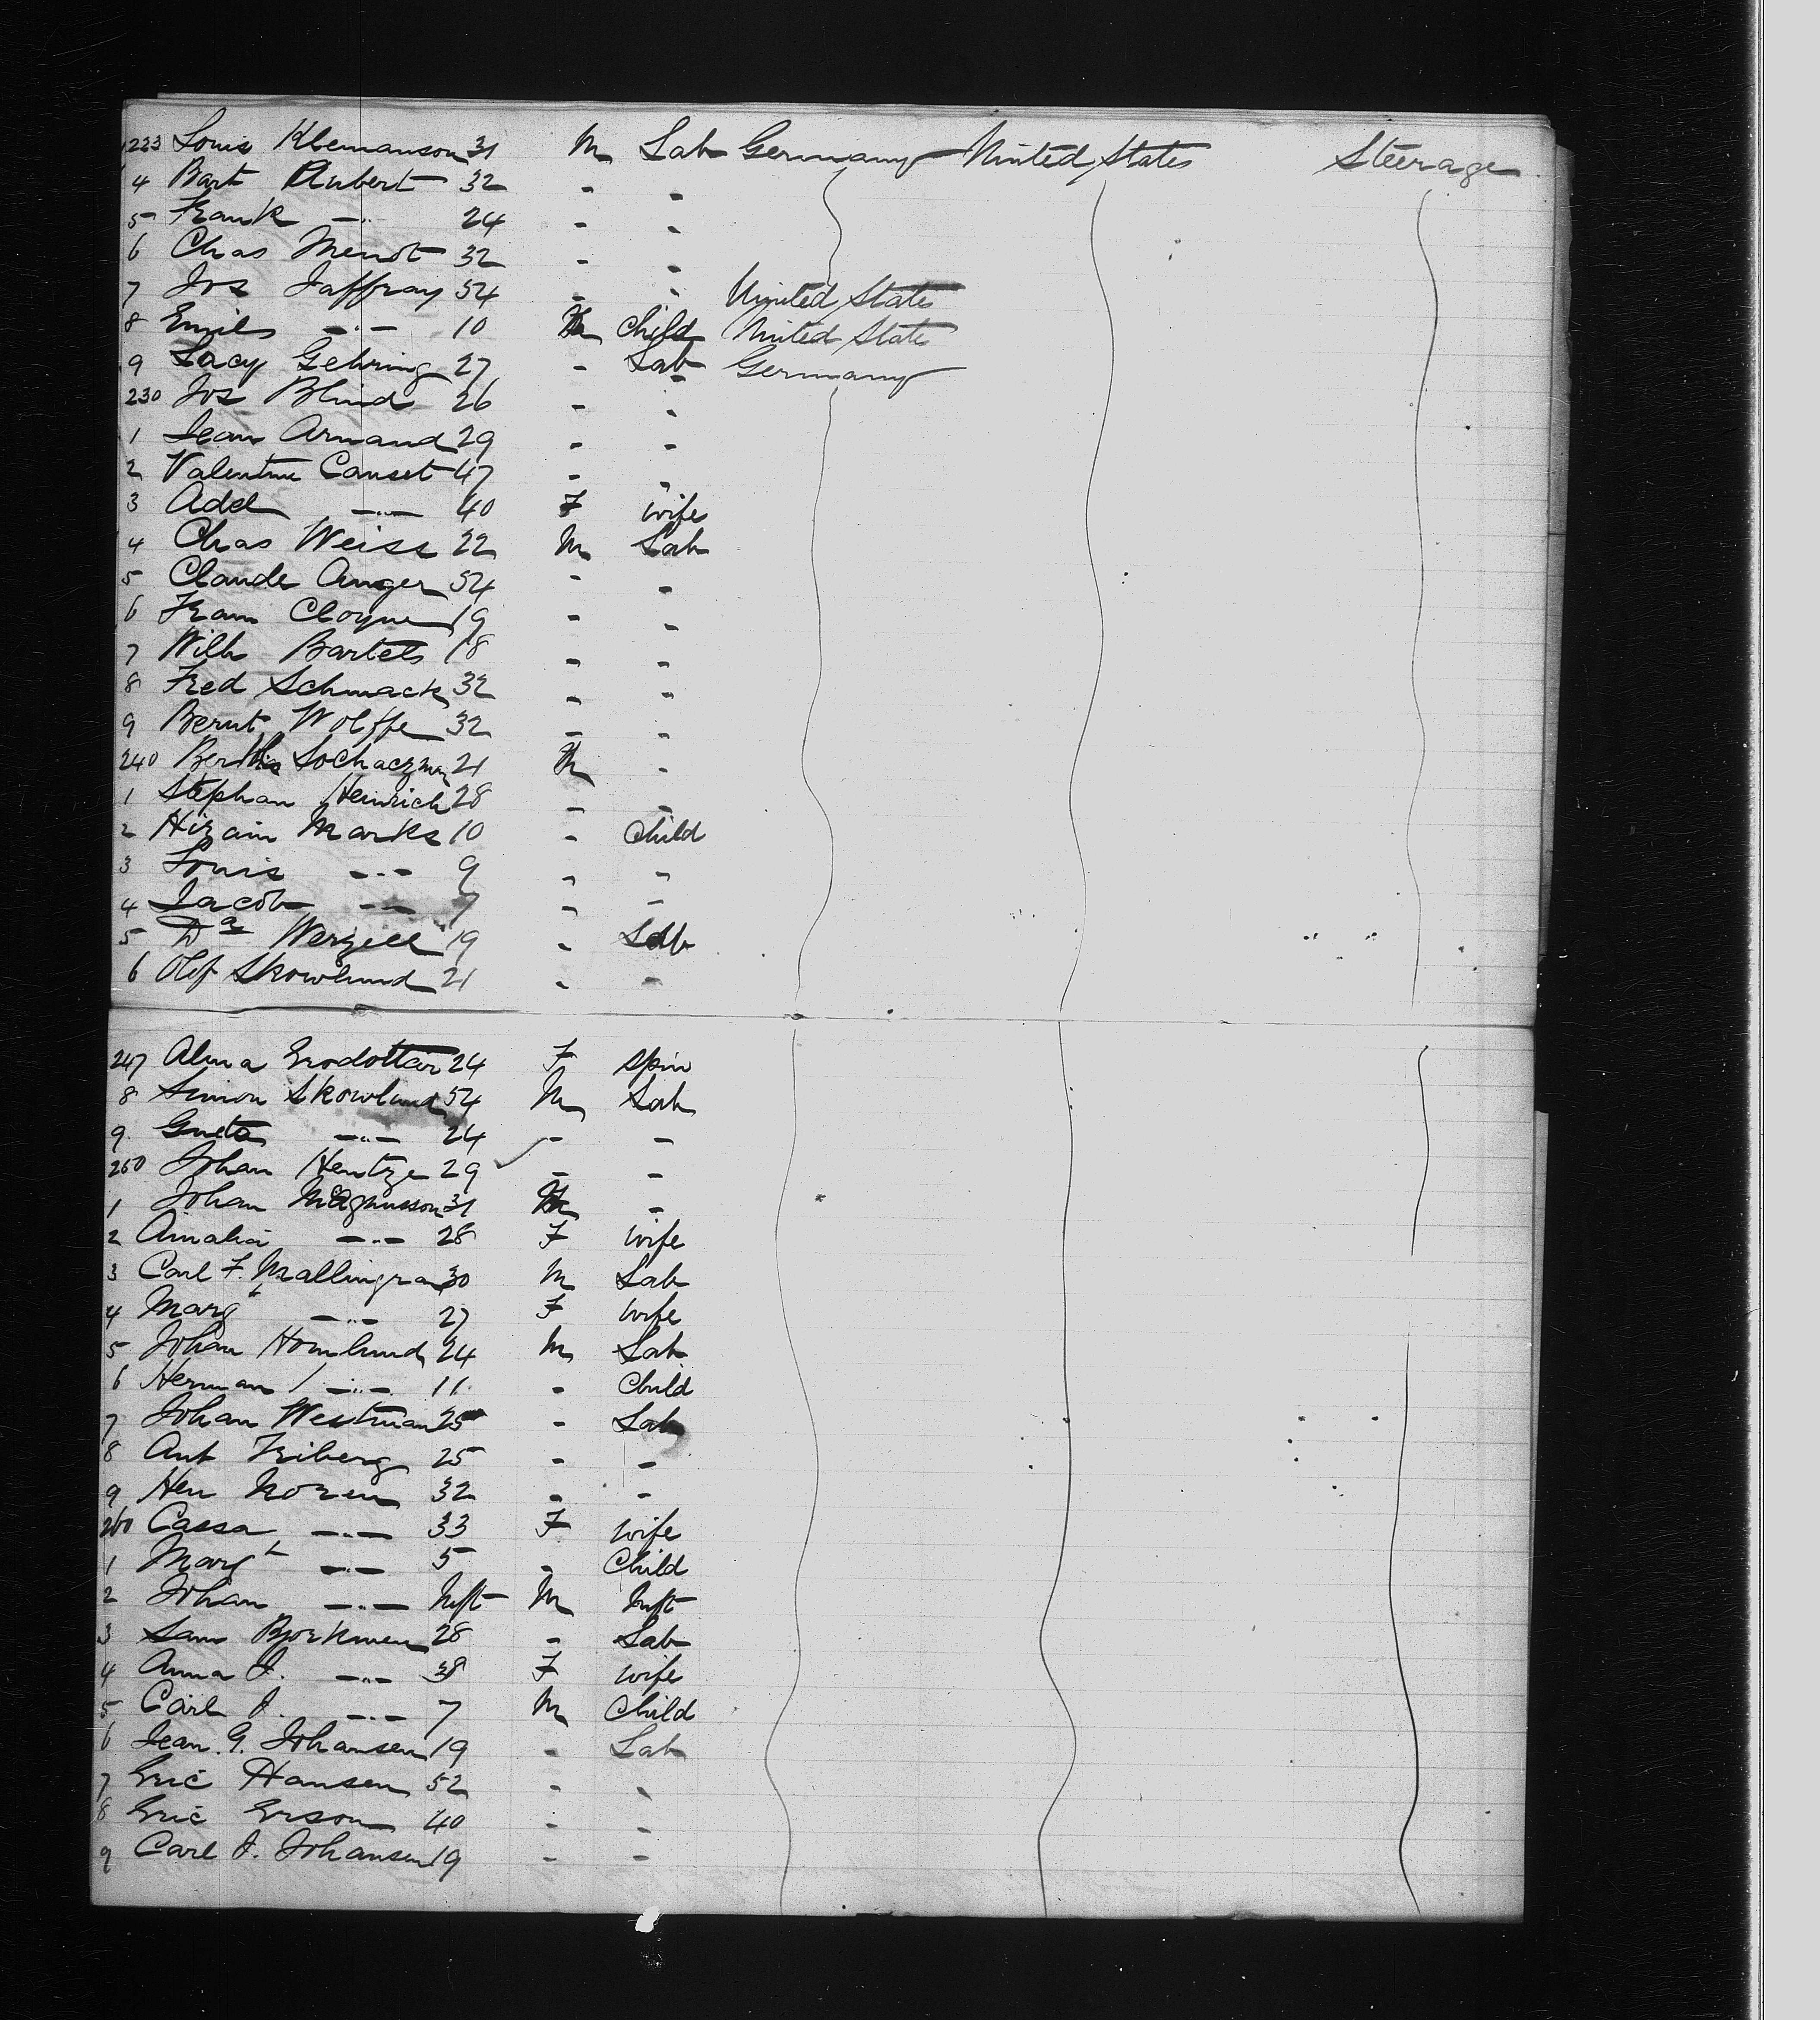 223 Louis Klemanson 31 M Lab Germany United States Steerage
4 Bart Aubert 32 - -
5 Frank -"- 24 - -
6 Chas Mendt 32 - -
7 Jos Jaffray 54 - - United State
8 Emile -"- 10 M Child United State
9 Lacy Gehring 27 - Lab Germany
230 Jos Blind 26 - -
1 Jean Armand 29 - -
2 Valentine Causet 47 - -
3 Adel -"- 40 F wife
4 Chas Weiss 22 M Lab
5 Claude Anger 54 - -
6 Fram Cloyne 19 - -
7 Wilh Bartels 18 - -
8 Fred Schmack 32 - -
9 Bernt Wolffe 32 - -
240 Lochaczman 21 M -
1 Stephan Heinrich 28 - -
2 Hiram Marks 10 - Child
3 Louis -"- 9 - -
4 Jacob -"- 7 - -
5 Werzell 19 - Lab
6 Olef Skowlund 21 - -
247 Alma Erodottar 24 F Spin
8 Simon Skowlund 54 M Lab
9 Gusta -"- 24 - -
250 Johan Hentze 29 - -
1 Johan Magnusson 31 M -
2 Amalia -"- 28 F wife
3 Carl F. Mallingran 30 M Lab
4 Margt -"- 27 F wife
5 Johan Homlund 24 M Lab
6 Herman -"- 11 - Child
7 Johan Westman 25 - Lab
8 Ant Friberg 25 - -
9 Hen Noren 32 - -
260 Cassa -"- 33 F wife
1 Margt -"- 5 - Child
2 Johan -"- Inft M Inft
3 Sam Bjorkman 28 - Lab
4 Anna J. -"- 38 F wife
5 Carl J. -"- 7 M Child
6 Jean G. Johansen 19 - Lab
7 Eric Hansen 52 - -
8 Eric Erson 40 - -
9 Carl J. Johansen 19 - -